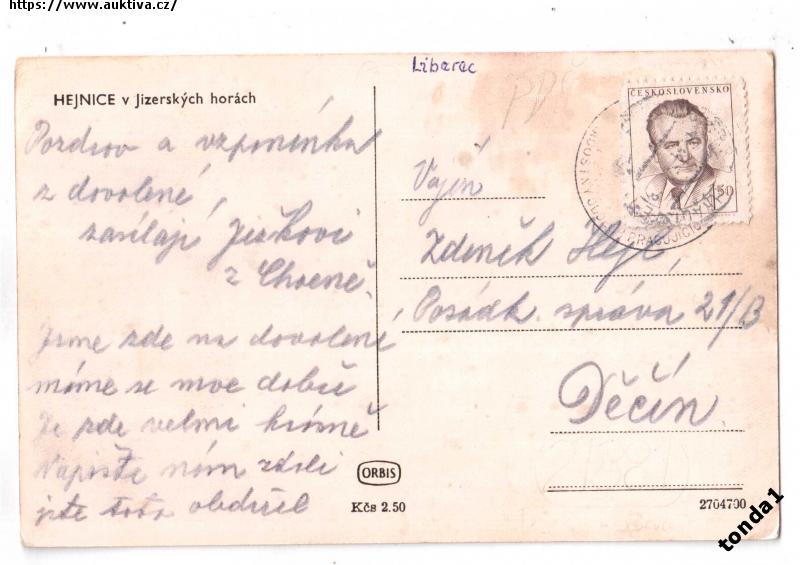 https://www.auktiva.cz/
Liberec
HEJNICE v Jizerských horách
Pozdrav a vzpomínka
z dovolené,
zasílají Ježkovi
z Chocně.
Jsme zde na dovolené
máme se moc dobře
Je zde velmi krásně
Napište nám zdali
jste toto obdržel
ČESKOSLOVENSKO
1,50
Vojín
Zdeněk
Posádk. správa 21/B
Děčín
ORBIS
Kčs 2.50
2704700
tonda1